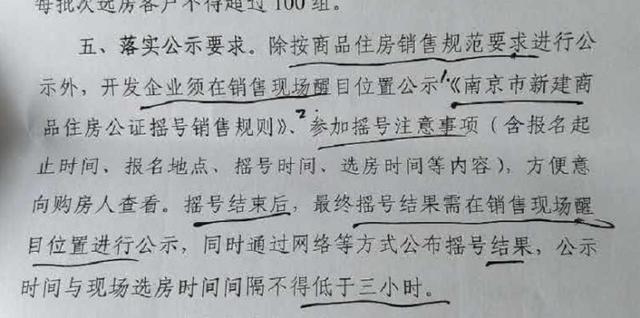 每批次选房客户不得超过 100 组。
五、落实公示要求。除按商品住房销售规范要求进行公
示外，开发企业须在销售现场醒目位置公示1.《南京市新建商
品住房公证摇号销售规则》、2参加摇号注意事项（含报名起
止时间、报名地点、摇号时间、选房时间等内容），方便意
向购房人查看。摇号结束后，最终摇号结果需在销售现场醒
目位置进行公示，同时通过网络等方式公布摇号结果，公示
时间与现场选房时间间隔不得低于三小时。